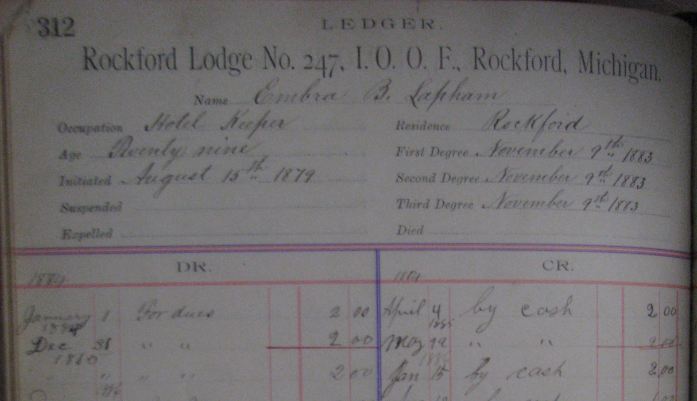 312
LEDGER.
Rockford Lodge No. 247, I. O. O. F., Rockford, Michigan.
Name Embra B. Lapham
Occupation Hotel Keeper Residence Rockford
Age Twenty nine First Degree November 9th 1883
Initiated August 15th 1879 Second Degree November 9th 1883
Suspended Third Degree November 9th 1883
Expelled Died
DR. CR.
January 1 For dues 2 00 April 4 by cash 2 00
Dec 31 " " 2 00 May " "
" " 2 00 Jan 15 by cash 2 00